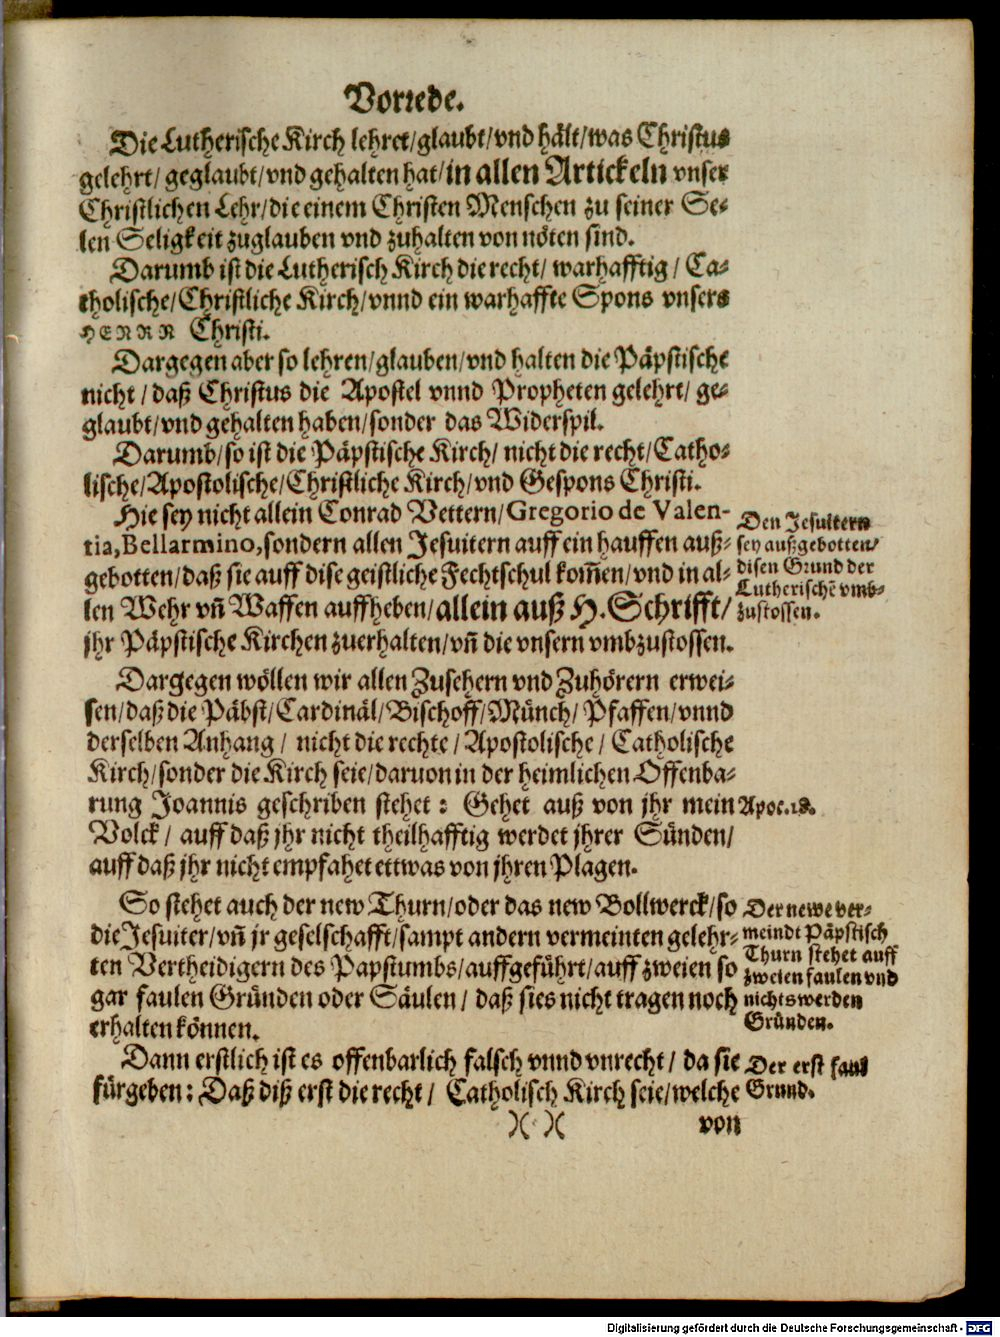 Vorrede.
Die Lutherische Kirch lehret/glaubt/vnd hält/was Christus
gelehrt/ geglaubt/vnd gehalten hat/in allen Artickeln vnser
Christlichen Lehr/die einem Christen Menschen zu seiner Se-
len Seligkeit zuglauben vnd zuhalten von nöten sind.
Darumb ist die Lutherisch Kirch die recht/ warhafftig/ Ca-
tholische/Christliche Kirch/vnnd ein warhaffte Spons vnsers
HERRN Christi.
Dargegen aber so lehren/glauben/vnd halten die Päpstische
nicht/daß Christus die Apostel vnnd Propheten gelehrt/ ge-
glaubt/vnd gehalten haben/sonder das Widerspil.
Darumb/so ist die Päpstische Kirch/ nicht die recht/Catho-
lische/Apostolische/Christliche Kirch/vnd Gespons Christi.
Hie sey nicht allein Conrad Vettern/Gregorio de Valen-
tia,Bellarmino,sondern allen Jesuitern auff ein hauffen auß-
gebotten/daß sie auff dise geistliche Fechtschul kom̃en/vnd in al-
len Wehr vñ Waffen auffheben/allein auß H.Schrifft/
jhr Päpstische Kirchen zuerhalten/vñ die vnsern vmbzustossen.
Den Jesuitern
sey außgebotten/
disen Grund der
Lutherischẽ vmb-
zustossen.
Dargegen wöllen wir allen Zusehern vnd Zuhörern erwei-
sen/daß die Päbst/Cardinäl/Bischoff/Münch/Pfaffen/vnnd
derselben Anhang/ nicht die rechte/Apostolische/ Catholische
Kirch/sonder die Kirch seie/daruon in der heimlichen Offenba-
rung Joannis geschriben stehet: Gehet auß von jhr mein
Volck/ auff daß jhr nicht theilhafftig werdet jhrer Sünden/
auff daß jhr nicht empfahet ettwas von jhren Plagen.
Apoc.18.
So stehet auch der new Thurn/oder das new Bollwerck/so
die Jesuiter/vñ jr geselschafft/sampt andern vermeinten gelehr-
ten Vertheidigern des Papstumbs/auffgeführt/auff zweien so
gar faulen Gründen oder Säulen/ daß sies nicht tragen noch
erhalten können.
Der newe ver-
meindt Päpstisch
Thurn stehet auff
zweien faulen vnd
nichtswerden
Gründen.
Dann erstlich ist es offenbarlich falsch vnnd vnrecht/ da sie
fürgeben: Daß diß erst die recht/ Catholisch Kirch seie/welche
Der erst faul
Grund.
)( )(
von
Digitalisierung gefördert durch die Deutsche Forschungsgemeinschaft - DFG